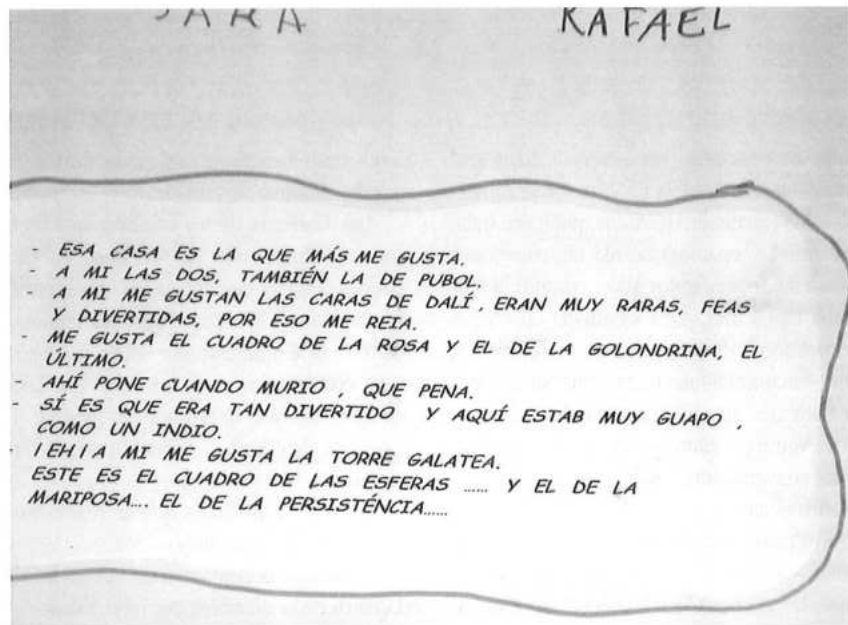 SARA RAFAEL
- ESA CASA ES LA QUE MÁS ME GUSTA.
- A MI LAS DOS, TAMBIÉN LA DE PUBOL.
- A MI ME GUSTAN LAS CARAS DE DALÍ, ERAN MUY RARAS, FEAS
Y DIVERTIDAS, POR ESO ME REIA.
- ME GUSTA EL CUADRO DE LA ROSA Y EL DE LA GOLONDRINA, EL
ÚLTIMO.
- AHÍ PONE CUANDO MURIO , QUE PENA.
- SÍ ES QUE ERA TAN DIVERTIDO Y AQUÍ ESTAB MUY GUAPO ,
COMO UN INDIO.
- ¡EH¡A MI ME GUSTA LA TORRE GALATEA.
ESTE ES EL CUADRO DE LAS ESFERAS ...... Y EL DE LA
MARIPOSA.... EL DE LA PERSISTÉNCIA......